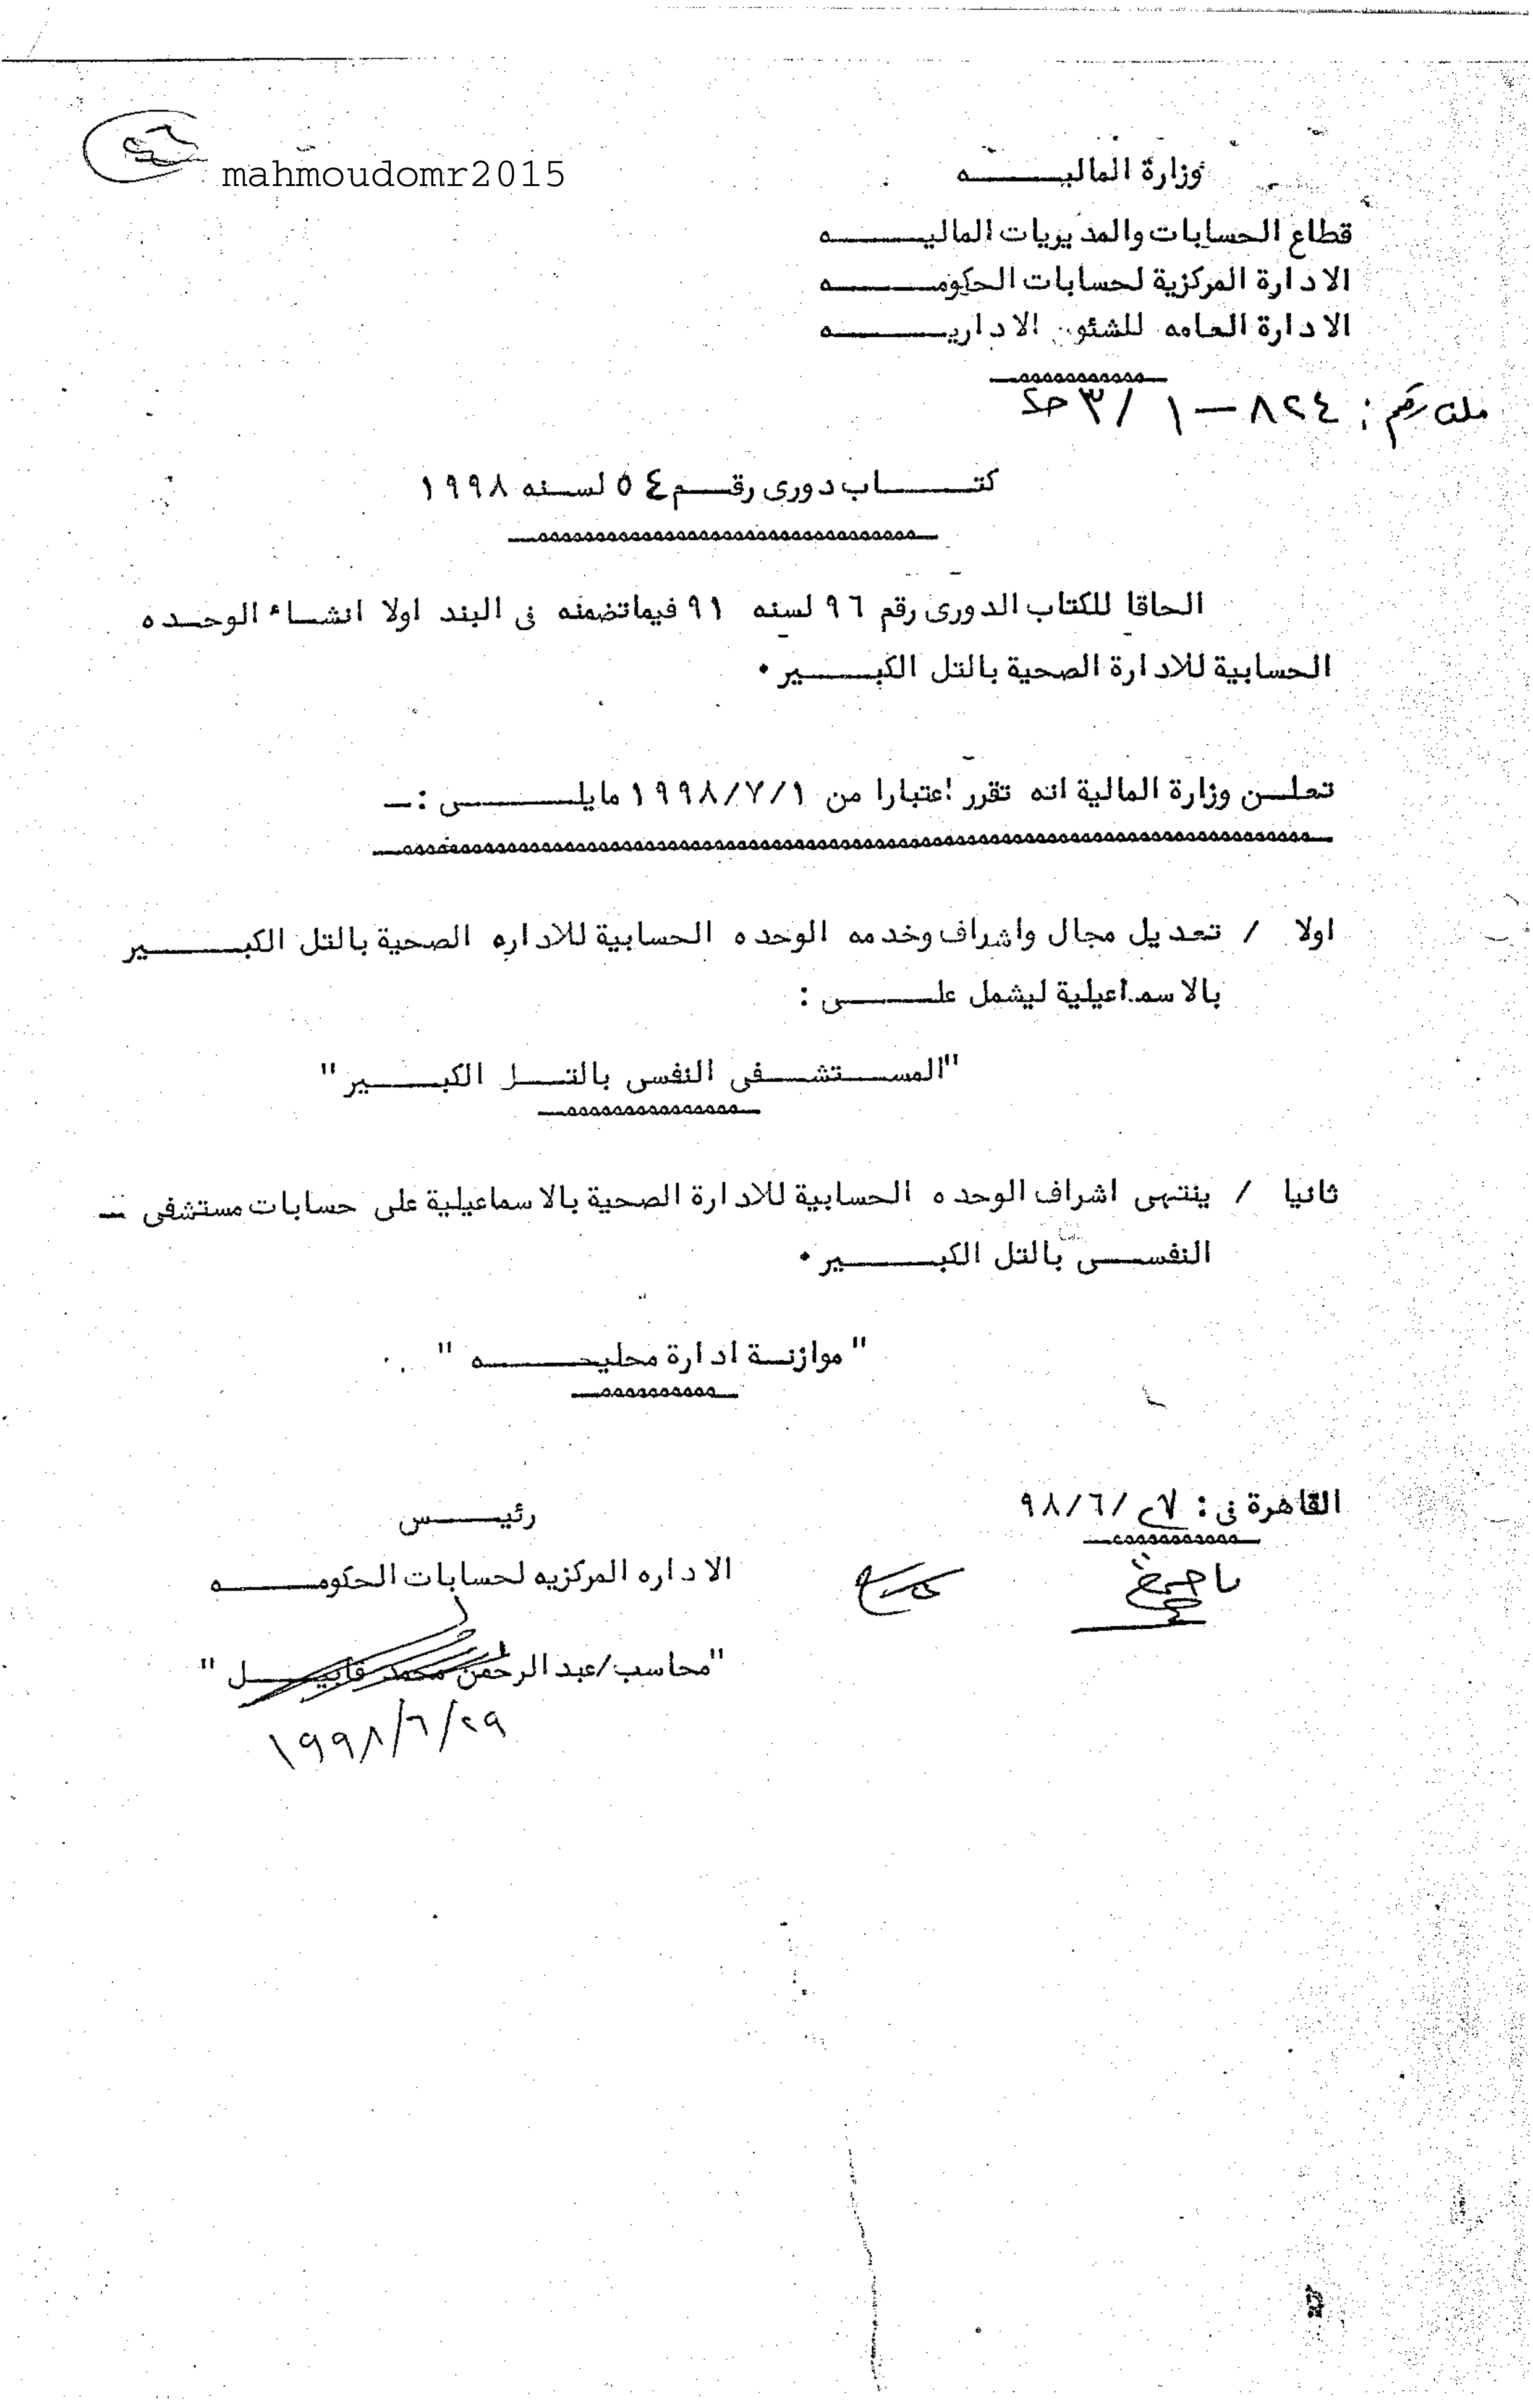 mahmoudomr2015
وزارة الماليـــــه
قطاع الحسابات والمديريات الماليـــــه
الادارة المركزية لحسابات الحكومـــــه
الادارة العامه للشئون الاداريـــــه
ملف رقم : ٨٢٤ – ١ / ٣
كتـــــاب دورى رقـــم ٥٤ لسـنه ١٩٩٨
الحاقا للكتاب الدورى رقم ٩٦ لسنه ٩١ فيماتضمنه فى البند اولا انشـاء الوحـده
الحسابية للادارة الصحية بالتل الكبـــــير ٠
تعلـن وزارة المالية انه تقرر اعتبارا من ١٩٩٨/٧/١ مايلـــــى :ـ
اولا / تعديل مجال واشراف وخدمه الوحده الحسابية للاداره الصحية بالتل الكبـــــير
بالاسماعيلية ليشمل علـــــى :
"المســـتشـــفى النفسى بالتـــل الكبـــــير"
ثانيا / ينتهى اشراف الوحده الحسابية للادارة الصحية بالاسماعيلية على حسابات مستشفى ـ
النفســـى بالتل الكبـــــير ٠
" موازنـة ادارة محليـــــه "
القاهرة فى : ٢٧/ ٩٨/٦
رئيـــــس
الاداره المركزيه لحسابات الحكومـــــه
"محاسب/عبد الرحمن محمد قابيـــــل "
١٩٩٨/٦/٢٩